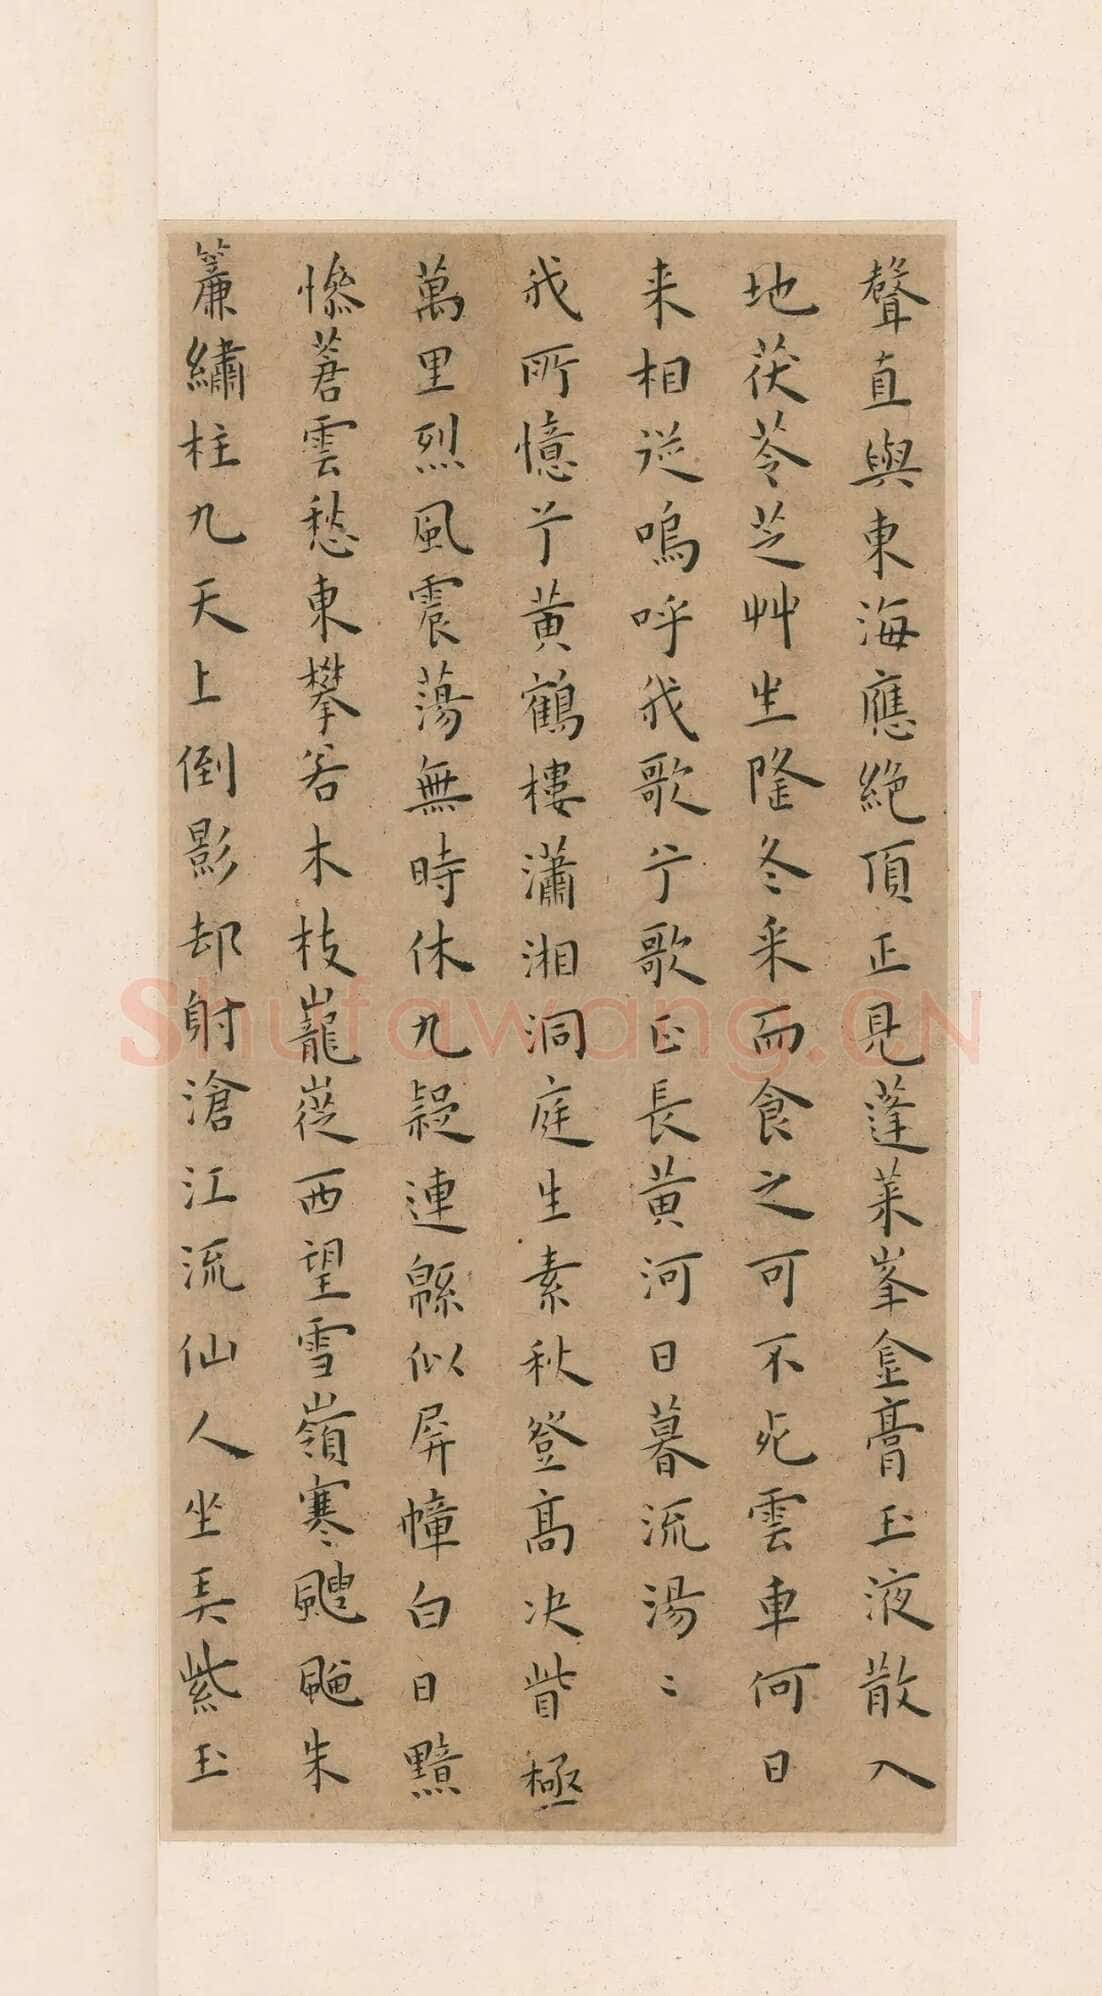 聲直與東海應絕頂正見蓬萊峯金膏玉液散入
地茯苓芝艸生隆冬采而食之可不死雲車何日
来相從嗚呼我歌兮歌正長黃河日暮流湯〻
我所憶兮黃鶴樓瀟湘洞庭生素秋登高決眥極
萬里烈風震蕩無時休九疑連緜似屏幛白日黯
慘蒼雲愁東攀若木枝巃嵸西望雪嶺寒颼飀朱
簾繡柱九天上倒影却射滄江流仙人坐弄紫玉
Shufawang.CN